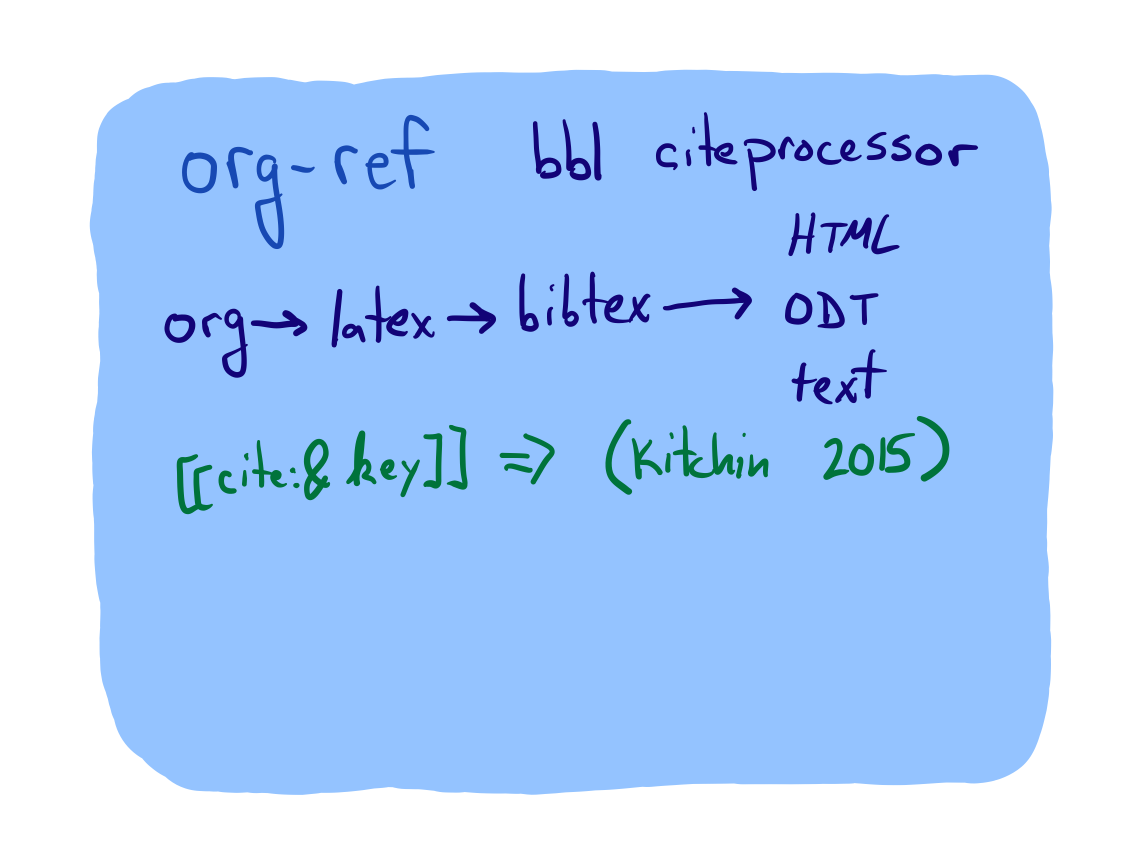 org-ref bbl citeprocessor
HTML
org → latex → bibtex → ODT
text
[[cite:& key]] => (Kitchin 2015)